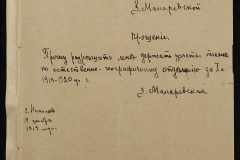 З. Макаревской
Прошение.
Прошу разрешить мне держать зачеты
по естественно-географическому отделению за I п.
1919-1920 уч. г.
З. Макаревская
г. Николаев
19 декабря
1919 года